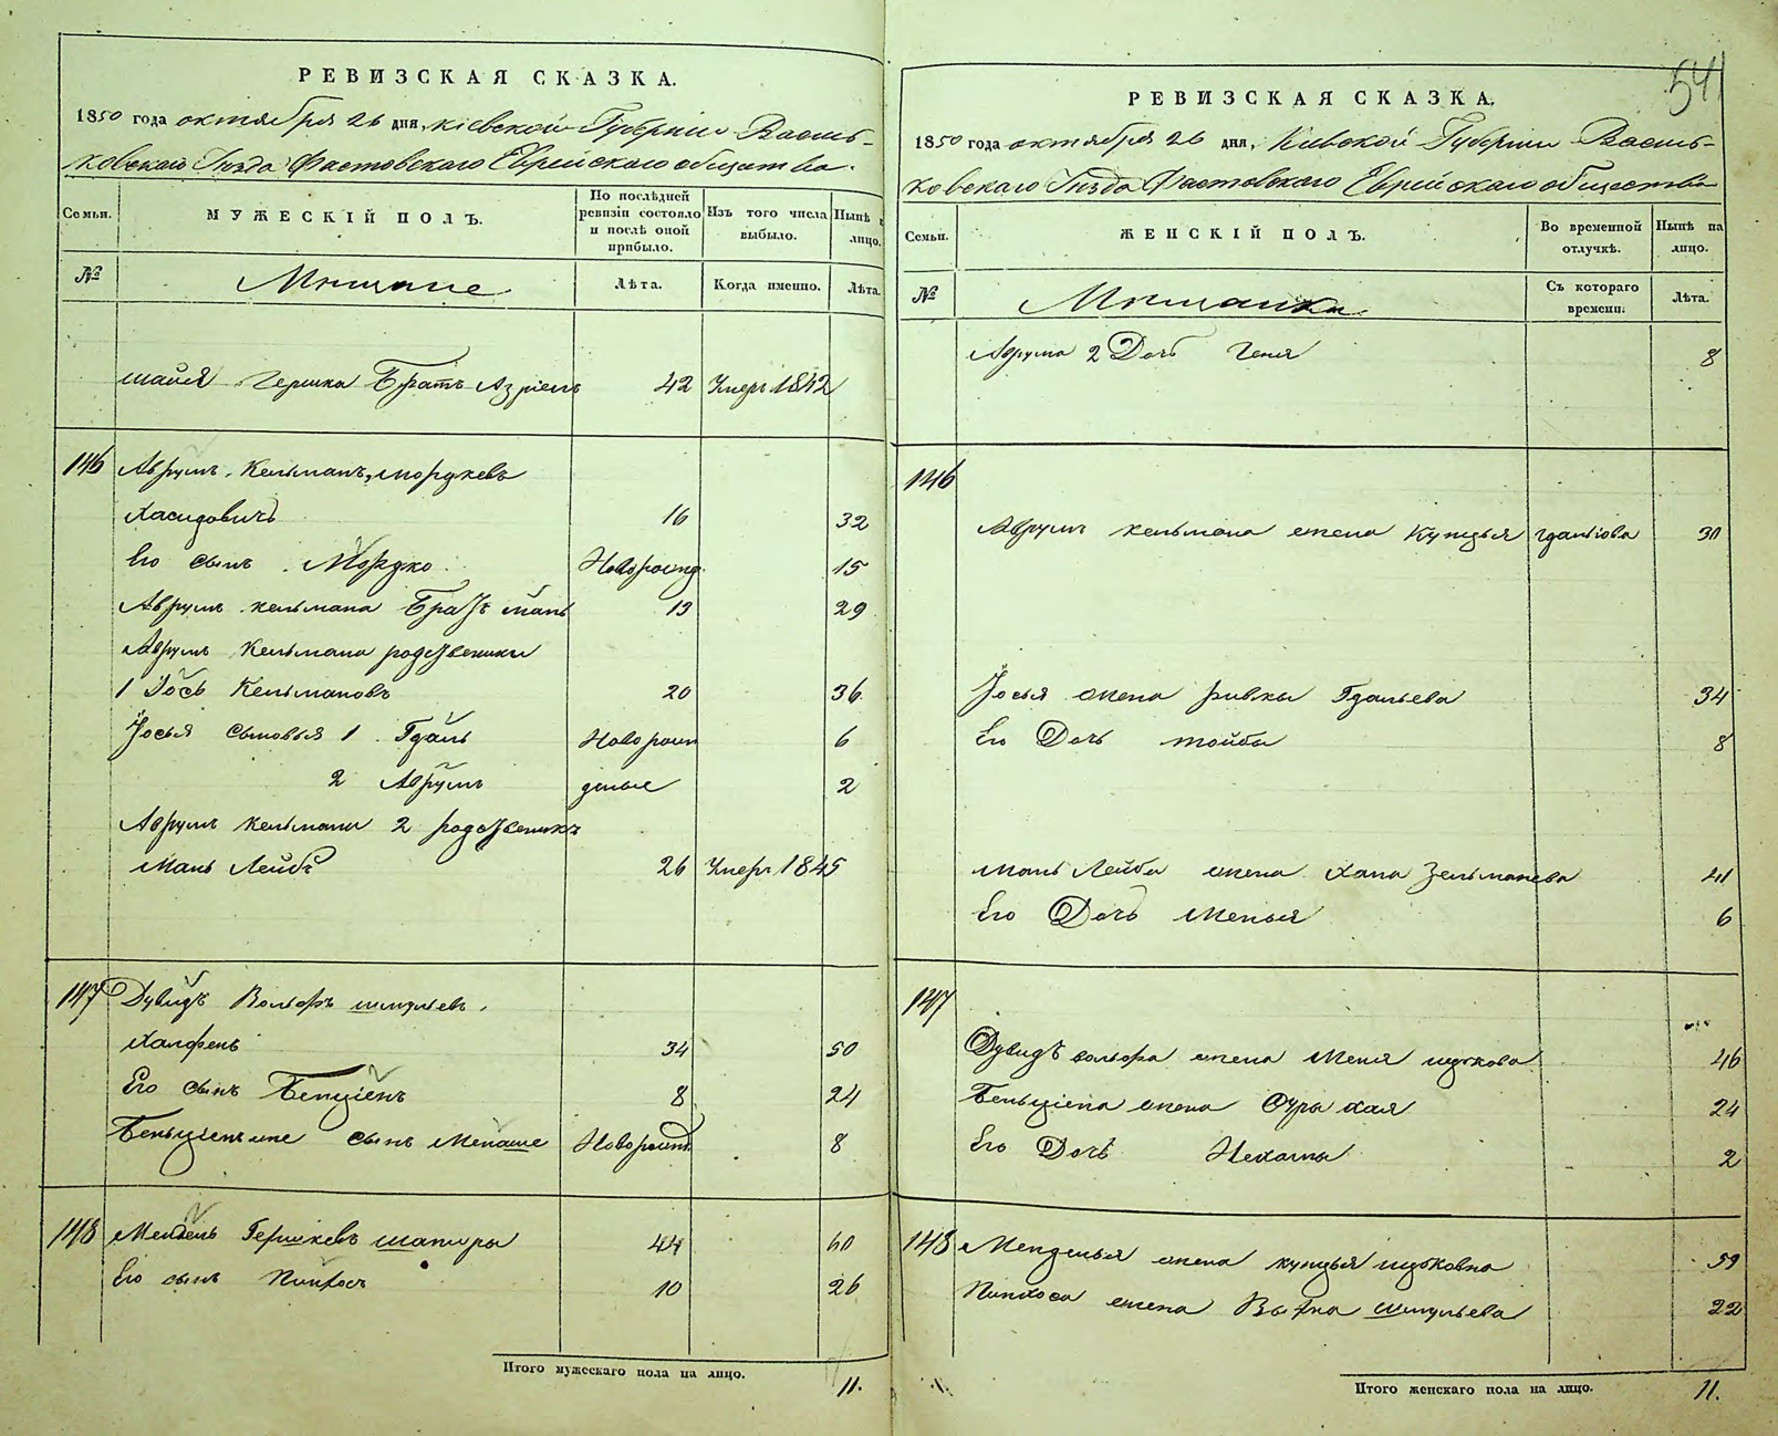 РЕВИЗСКАЯ СКАЗКА.
1850 года октября 26 дня, Кіевской Губерніи Василь-
ковскаго Уѣзда Фастовскаго Еврейскаго общества.
Семьи.
МУЖЕСКІЙ ПОЛЪ.
По послѣдней ревизіи состояло и послѣ оной прибыло.
Изъ того числа выбыло.
Нынѣ на лицо.
№
Мѣщане
Лѣта.
Когда именно.
Лѣта.
Гершка Братъ Азріель 42 Умеръ 1842
146 Аврумъ Кельманъ, Мордкевъ
Хасидовичъ 16 32
Его сынъ Мордко Новорожд 15
Аврумъ Кельмана Братъ Мань 13 29
Аврумъ Кельмана родственики
1 Іось Кельмановъ 20 36
Іосья сыновья 1 Гдаль Новорож 6
2 Аврумъ деные 2
Аврумъ Кельмана 2 родственикъ
Мань Лейба 26 Умеръ 1845
147 Дувидъ Вольфъ Шмулевъ
Халфенъ 34 50
Его сынъ Бенціенъ 8 24
сынъ Менаше Новорожд 8
148 Мендель Гершкевъ Шапиры 44 60
Его сынъ Пинхосъ 10 26
Итого мужескаго пола на лицо. 11.
541
РЕВИЗСКАЯ СКАЗКА.
1850 года октября 26 дня, Кіевской Губерніи Василь-
ковскаго Уѣзда Фастовскаго Еврейскаго общества
Семьи.
ЖЕНСКІЙ ПОЛЪ.
Во временной отлучкѣ.
Нынѣ на лицо.
№
Мѣщанки
Съ котораго времени.
Лѣта.
Аврума 2 Дочь Геня 8
146
Аврумъ Кельмана жена Купцья Гдальова 30
Іосья жена Ривка Гдальева 34
Его Дочь Тойба 8
Мань Лейба жена Хана Зельманева 41
Его Дочь Менья 6
147
Дувидъ Вольфа жена Меня Ицкова 46
Беньціена жена Сура Хая 24
Его Дочь Нехама 2
148 Менделья жена Купцья Ицковна 59
Пинхоса жена Шмульева 22
Итого женскаго пола на лицо. 11.